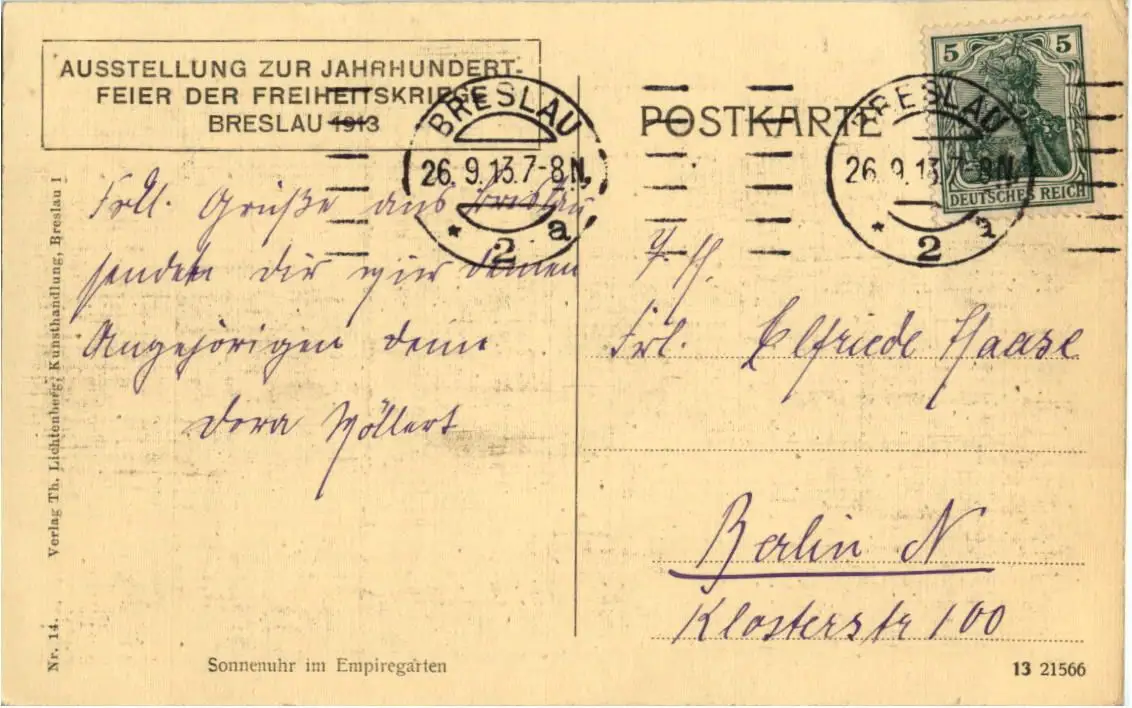 AUSSTELLUNG ZUR JAHRHUNDERT-
FEIER DER FREIHEITSKRIEGE
BRESLAU 1913
BRESLAU
26.9.13.7-8N.
* 2 a
POSTKARTE
BRESLAU
26.9.13.7-8N.
* 2 a
5 5
DEUTSCHES REICH
Frdl. Grüße aus Breslau
senden dir wir deinen
Angehörigen deine
Dora Möllert
Frl. Elfriede Haase
Berlin N
Klosterstr 100
Nr. 14. Verlag Th. Lichtenberg, Kunsthandlung, Breslau I
Sonnenuhr im Empiregarten
13 21566